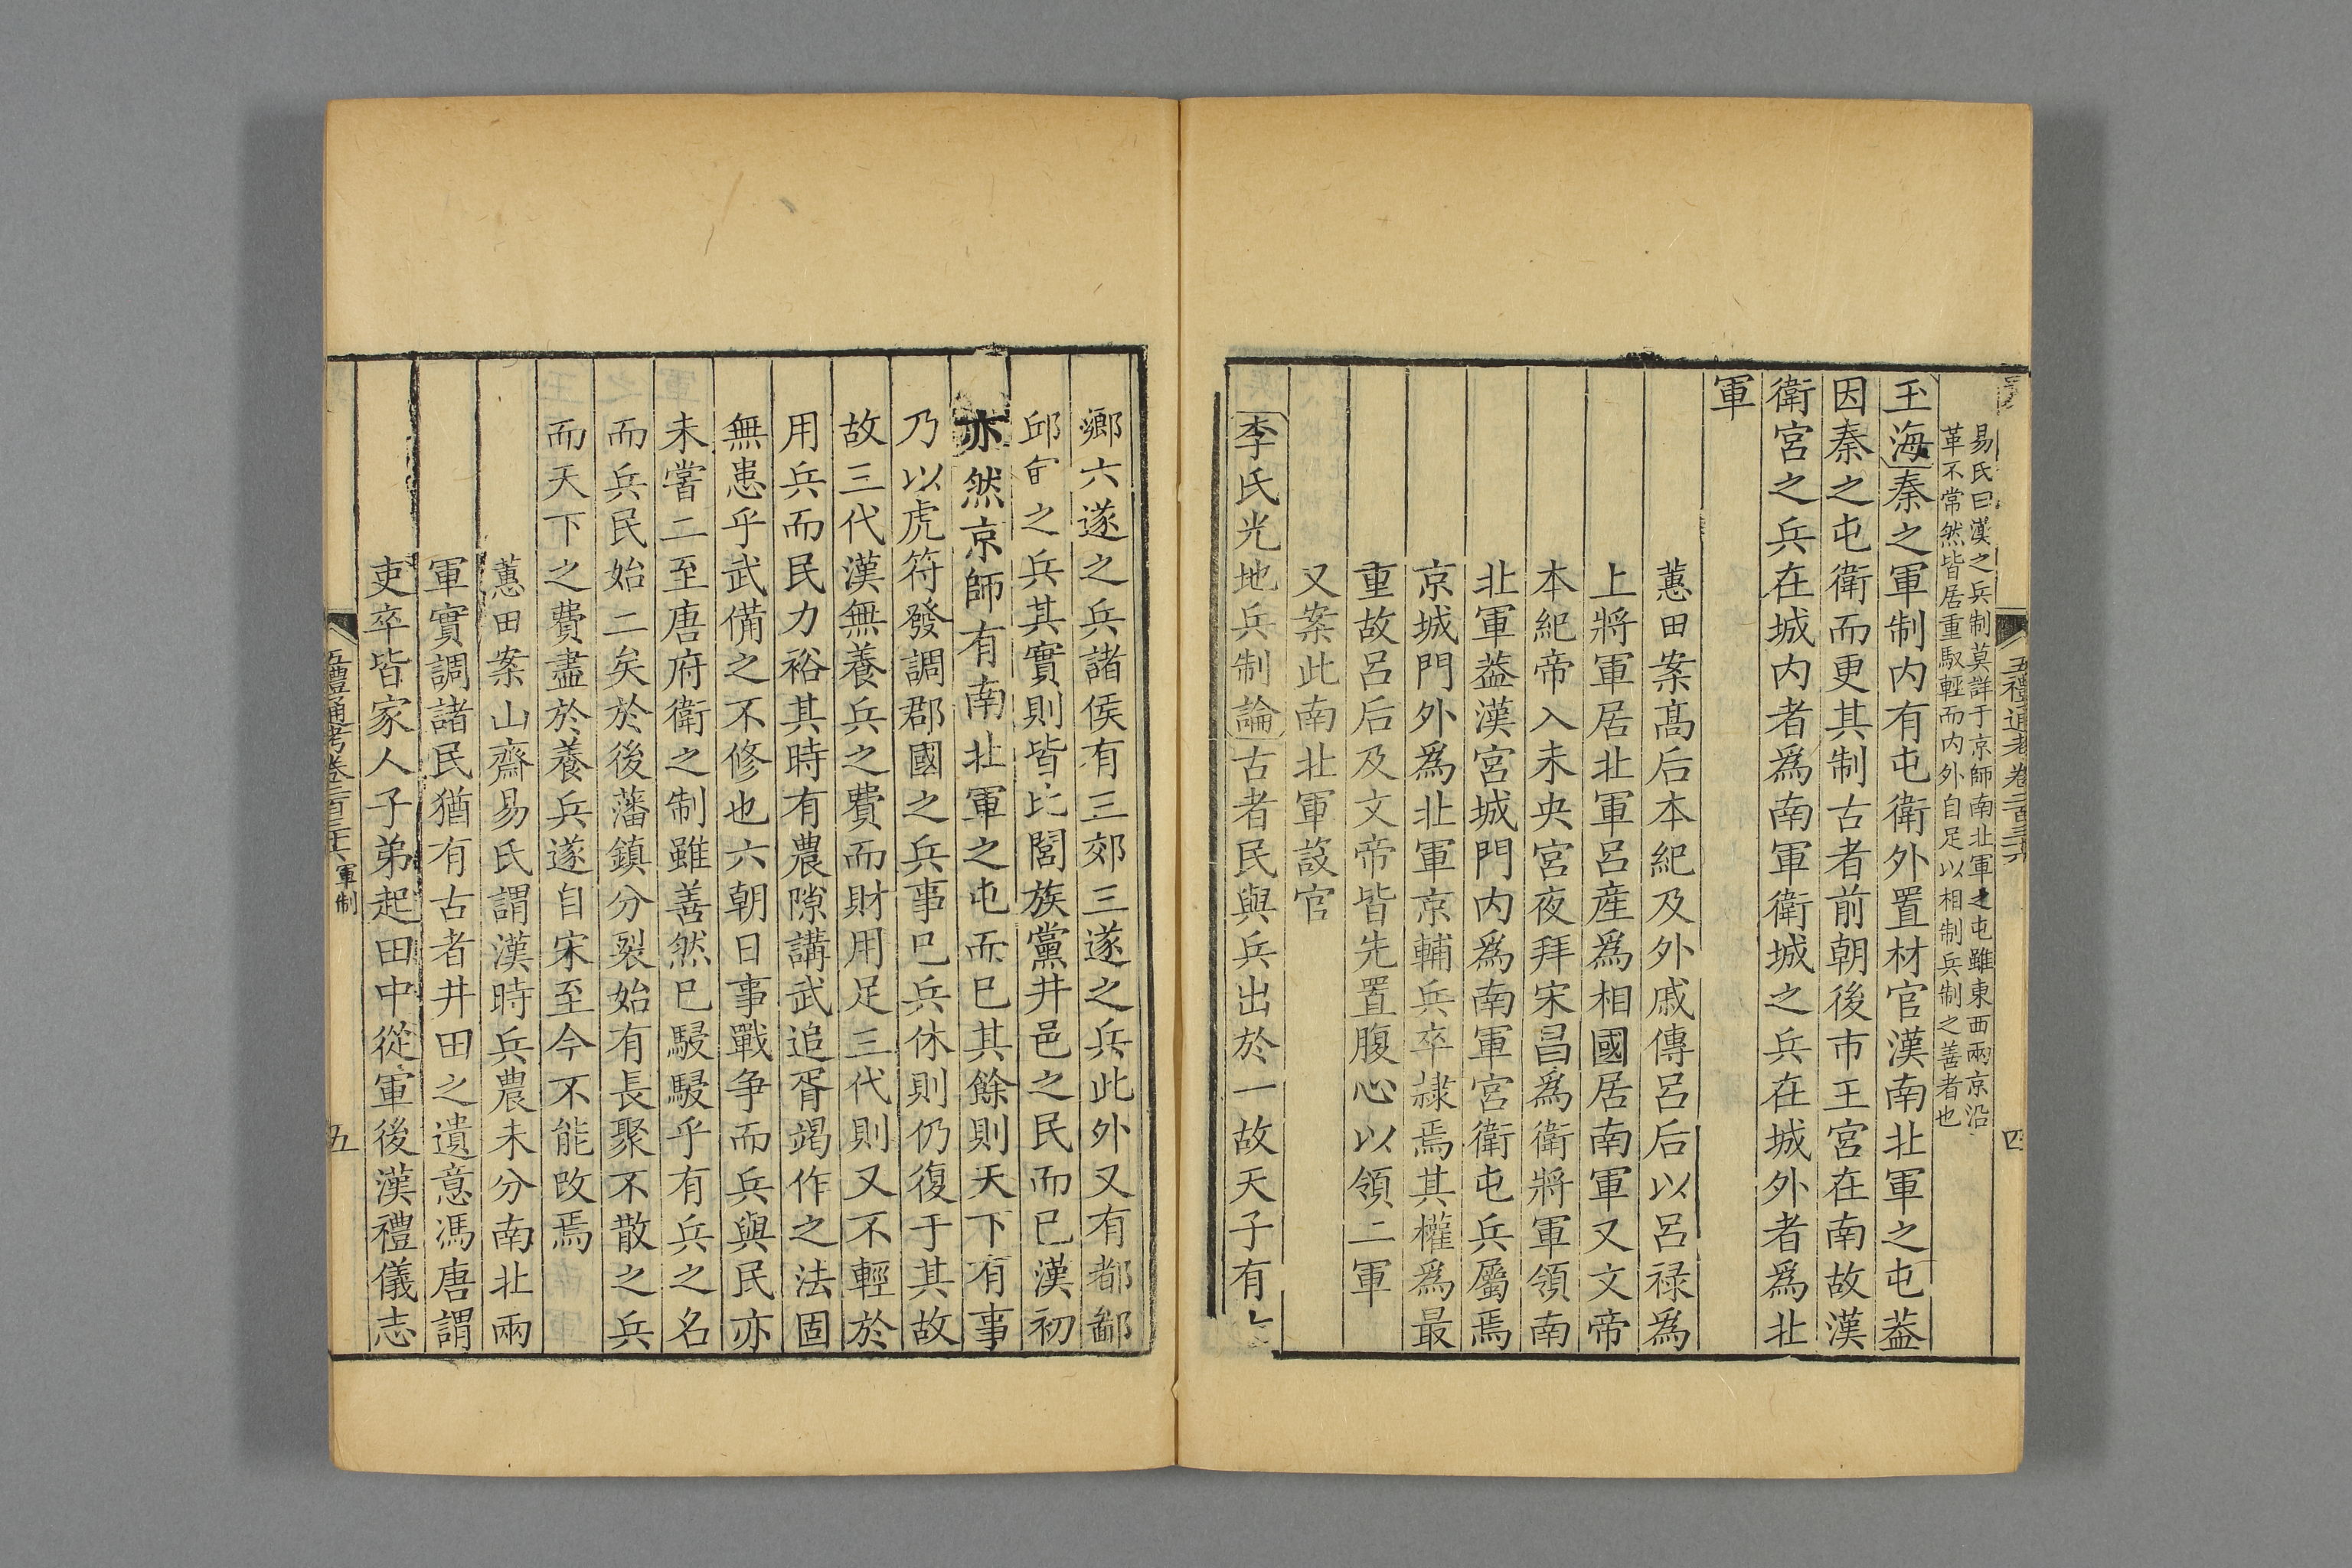 五禮通考卷二百三十六
四
易氏曰漢之兵制莫詳于京師南北軍之屯雖東西兩京沿
革不常然皆居重馭輕而內外自足以相制兵制之善者也
玉海秦之軍制內有屯衛外置材官漢南北軍之屯葢
因秦之屯衛而更其制古者前朝後市王宮在南故漢
衛宮之兵在城內者爲南軍衛城之兵在城外者爲北
軍
蕙田案髙后本紀及外戚傳呂后以呂祿爲
上將軍居北軍呂産爲相國居南軍又文帝
本紀帝入未央宮夜拜宋昌爲衛將軍領南
北軍葢漢宮城門內爲南軍宮衛屯兵屬焉
京城門外爲北軍京輔兵卒隸焉其權爲最
重故呂后及文帝皆先置腹心以領二軍
又案此南北軍設官
李氏光地兵制論古者民與兵出於一故天子有
鄉六遂之兵諸侯有三郊三遂之兵此外又有都鄙
邱甸之兵其實則皆比閭族黨井邑之民而已漢初
亦然京師有南北軍之屯而已其餘則天下有事
乃以虎符發調郡國之兵事已兵休則仍復于其故
故三代漢無養兵之費而財用足三代則又不輕於
用兵而民力裕其時有農隙講武追胥竭作之法固
無患乎武備之不修也六朝日事戰爭而兵與民亦
未嘗二至唐府衛之制雖善然已駸駸乎有兵之名
而兵民始二矣於後藩鎮分裂始有長聚不散之兵
而天下之費盡於養兵遂自宋至今不能改焉
蕙田案山齋易氏謂漢時兵農未分南北兩
軍實調諸民猶有古者井田之遺意馮唐謂
吏卒皆家人子弟起田中從軍後漢禮儀志
五禮通考卷二百三十六 軍制
五